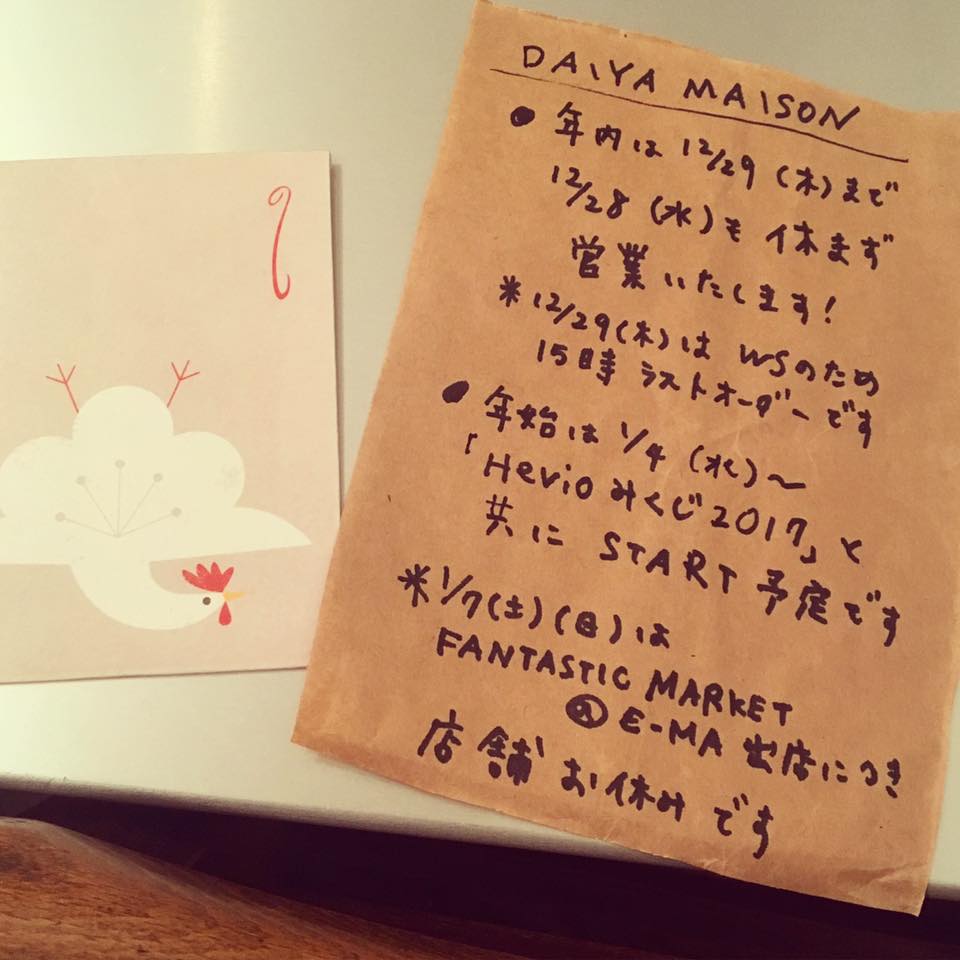 DAIYA MAISON
● 年内は 12/29 (木)まで
12/28 (水)も 休まず
営業いたします!
※12/29(木)は WSのため
15時 ラストオーダーです
● 年始は 1/4 (水)～
「Hevioみくじ2017」と
共に START 予定です
※1/7(土)(日)は
FANTASTIC MARKET
@ E-MA 出店につき
店舗 お休み です